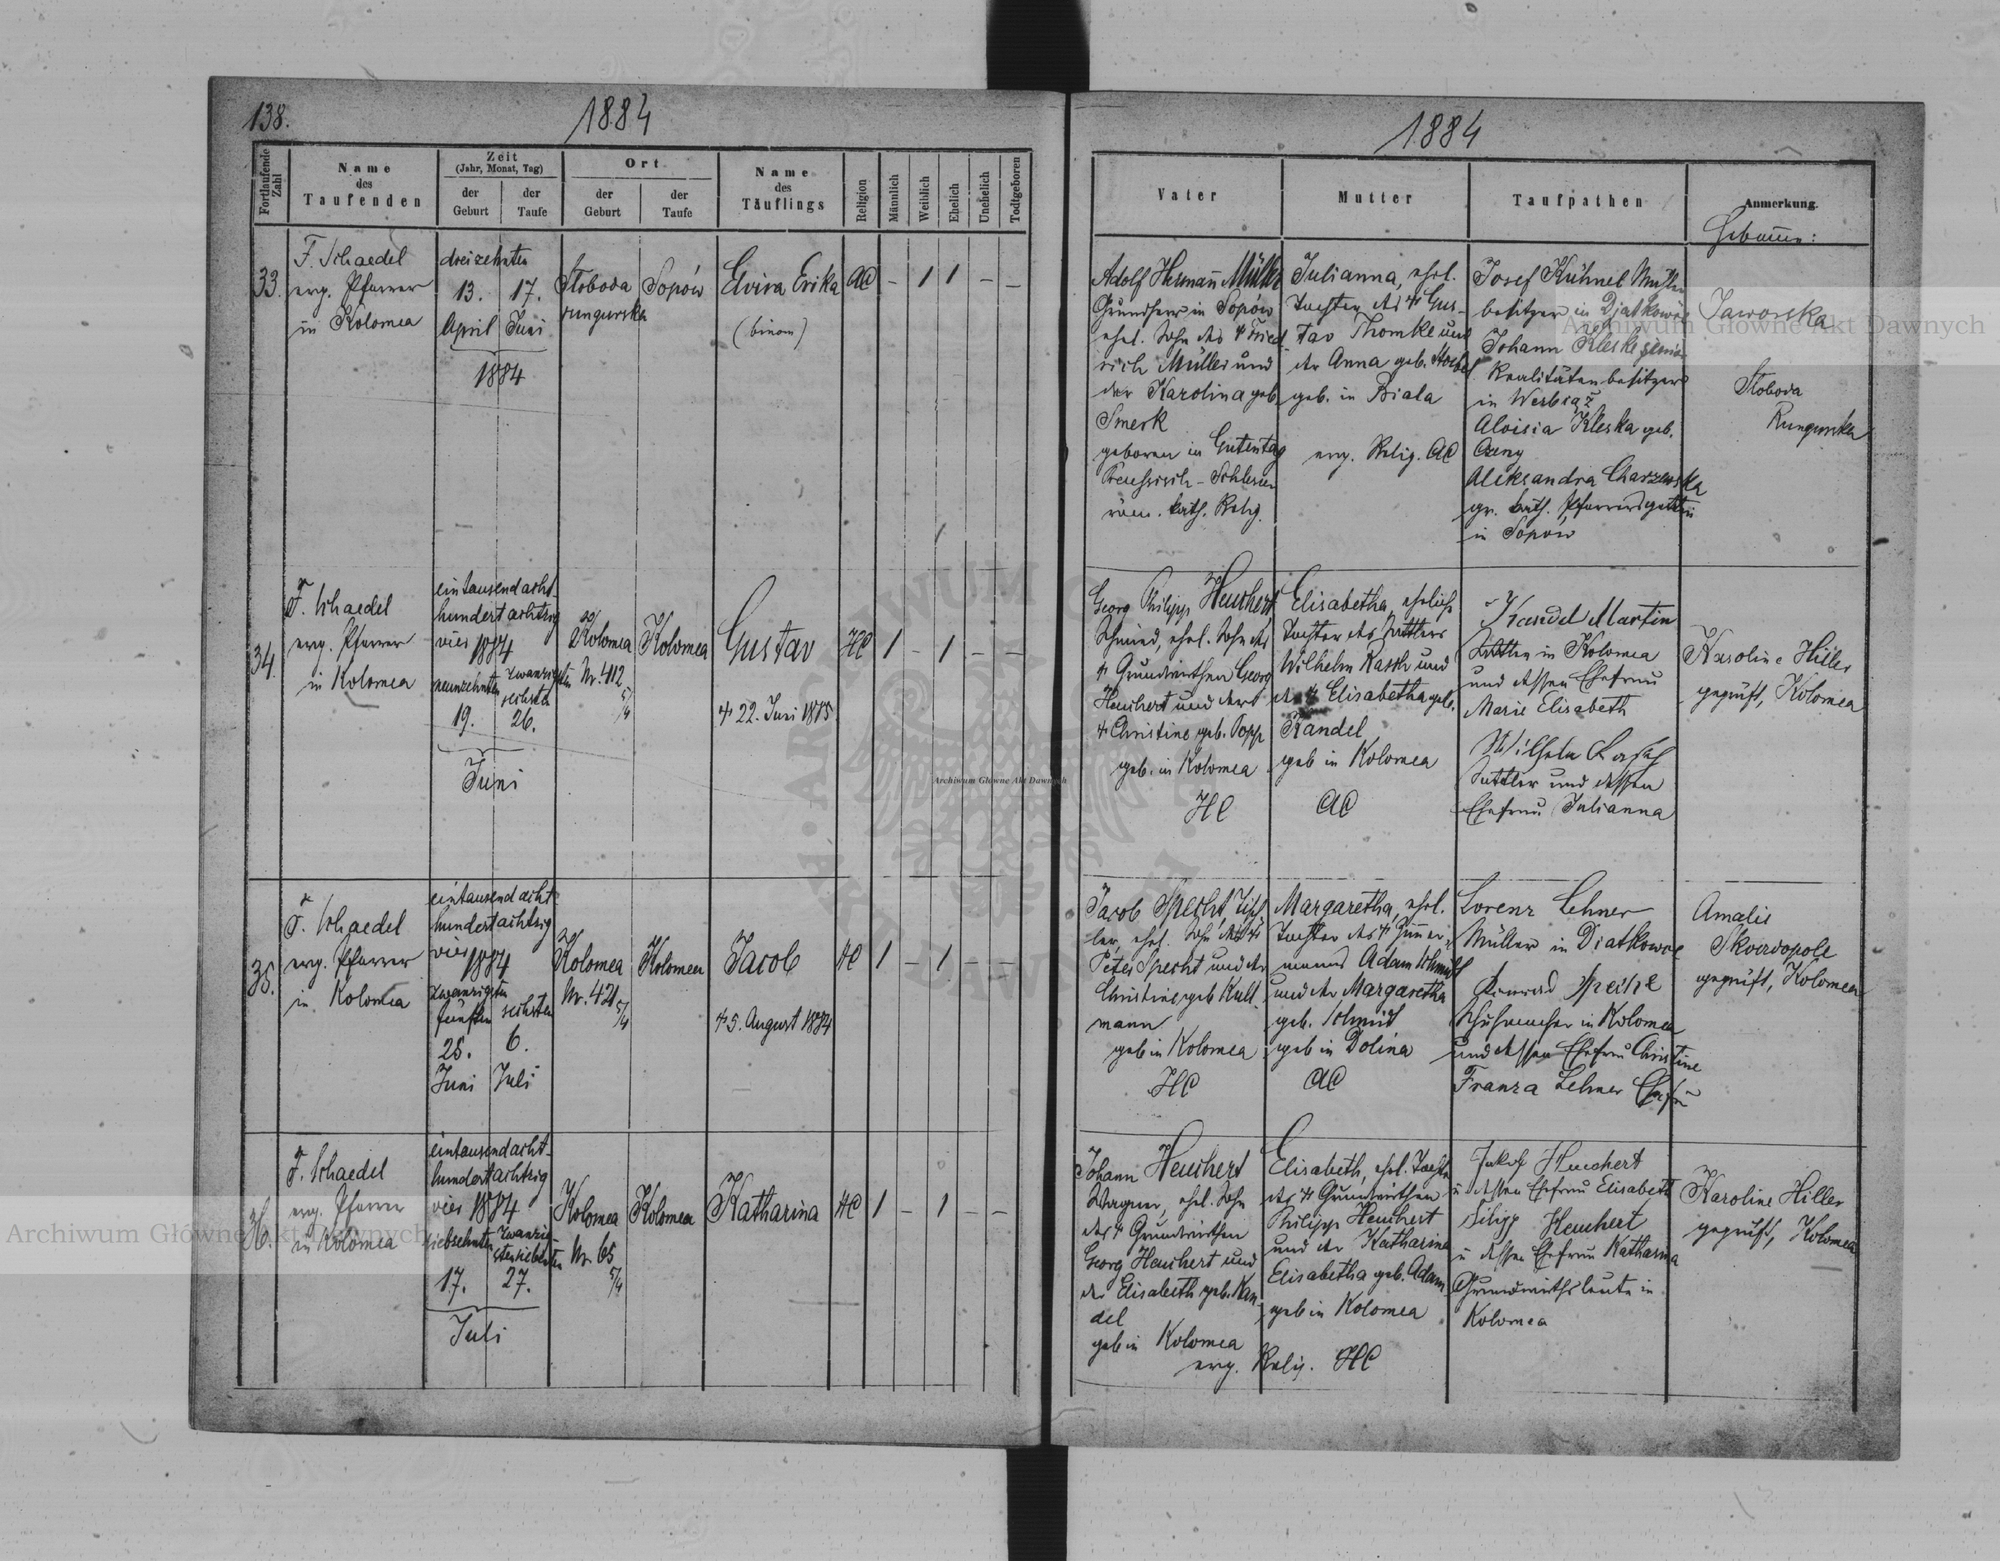 138.
1884
1884
Fortlaufende Zahl
Name
des
Taufenden
Zeit
(Jahr, Monat, Tag)
der
Geburt
der
Taufe
Ort
der
Geburt
der
Taufe
Name
des
Täuflings
Religion
Männlich
Weiblich
Ehelich
Unehelich
Todtgeboren
Vater
Mutter
Taufpathen
Anmerkung.
33.
F. Schaedel
evg. Pfarrer
in Kolomea
dreizehnten
13. 17.
April Juni
1884
Sloboda
rungurska
Sopów
Elvira Erika
(binom)
AC
- 1 1 - -
Adolf Hermañ Müller
Grundherr in Sopów
ehel. Sohn des † Fried
rich Müller und
der Karolina geb.
Smerk
geboren in Gutentag
Preussisch-Schlesien
röm. kath. Relig.
Julianna, ehel.
Tochter des † Gus-
tav Thomke und
der Anna geb.
geb. in Biala
evg. Relig. AC
Josef Kühnel Müller
besitzer in Djatkowce
Johann Kleske
Realitätenbesitzer
in Werbiąż
Aloisia Kleska geb.
Czerny
Aleksandra Charzewska
gr. kath. Pfarrersgattin
in Sopów
Jaworska
Sloboda
Rungurska
34.
F. Schaedel
evg. Pfarrer
in Kolomea
eintausendacht-
hundertachtzig
vier 1884
neunzehnten zwanzigsten
sechsten
19. 26.
Juni
Kolomea
Nr. 412
5/4
Kolomea
Gustav
† 22. Juni 1885
HC
1 - 1 - -
Georg Philipp Heuchert
Schmied, ehel. Sohn des
† Grundwirthen Georg
Heuchert und der
† Christine geb. Popp
geb. in Kolomea
HC
Elisabetha, eheliche
Tochter des Sattlers
Wilhelm Rasch und
der † Elisabetha geb.
Kandel
geb in Kolomea
AC
Kandel Martin
in Kolomea
und dessen Ehefrau
Marie Elisabeth
Wilhelm Rasch
Sattler und dessen
Ehefrau Julianna
Karoline Hiller
geprüft, Kolomea
35.
F. Schaedel
evg. Pfarrer
in Kolomea
eintausendacht
hundertachtzig
vier 1884
zwanzigsten
fünften sechsten
25. 6.
Juni Juli
Kolomea
Nr. 421
5/4
Kolomea
Jacob
† 5. August 1884
HC
1 - 1 - -
Jacob Specht, Tisch
ler, ehel. Sohn des †
Peter Specht und der
Christine geb Kull
mann
geb in Kolomea
HC
Margaretha, ehel.
Tochter des † Zimmer-
manns Adam Schmidt
und der Margaretha
geb. Schmidt
geb in Dolina
AC
Lorenz Lehner
Müller in Diatkowce
Konrad Specht
Schuhmacher in Kolomea
und dessen Ehefrau Christine
Franza Lehner Ehefrau
Amalie
Skwodopole
geprüft, Kolomea
36.
F. Schaedel
evg. Pfarrer
in Kolomea
eintausendacht-
hundertachtzig
vier 1884
siebzehnten zwanzig-
stensiebenten
17. 27.
Juli
Kolomea
Nr. 65
5/4
Kolomea
Katharina
HC
1 - 1 - -
Johann Heuchert
Wagner, ehel. Sohn
des † Grundwirthen
Georg Heuchert und
der Elisabeth geb. Kan
del
geb in Kolomea
evg. Relig. HC
Elisabeth, ehel. Tochter
des † Grundwirthen
Philipp Heuchert
und der Katharina
Elisabetha geb. Adam
geb in Kolomea
Jakob Heuchert
u dessen Ehefrau Elisabeth
Filipp Heuchert
u dessen Ehefrau Katharina
Grundwirthsleute in
Kolomea
Karoline Hiller
geprüft, Kolomea
Archiwum Główne Akt Dawnych
Archiwum Główne Akt Dawnych
Archiwum Główne Akt Dawnych